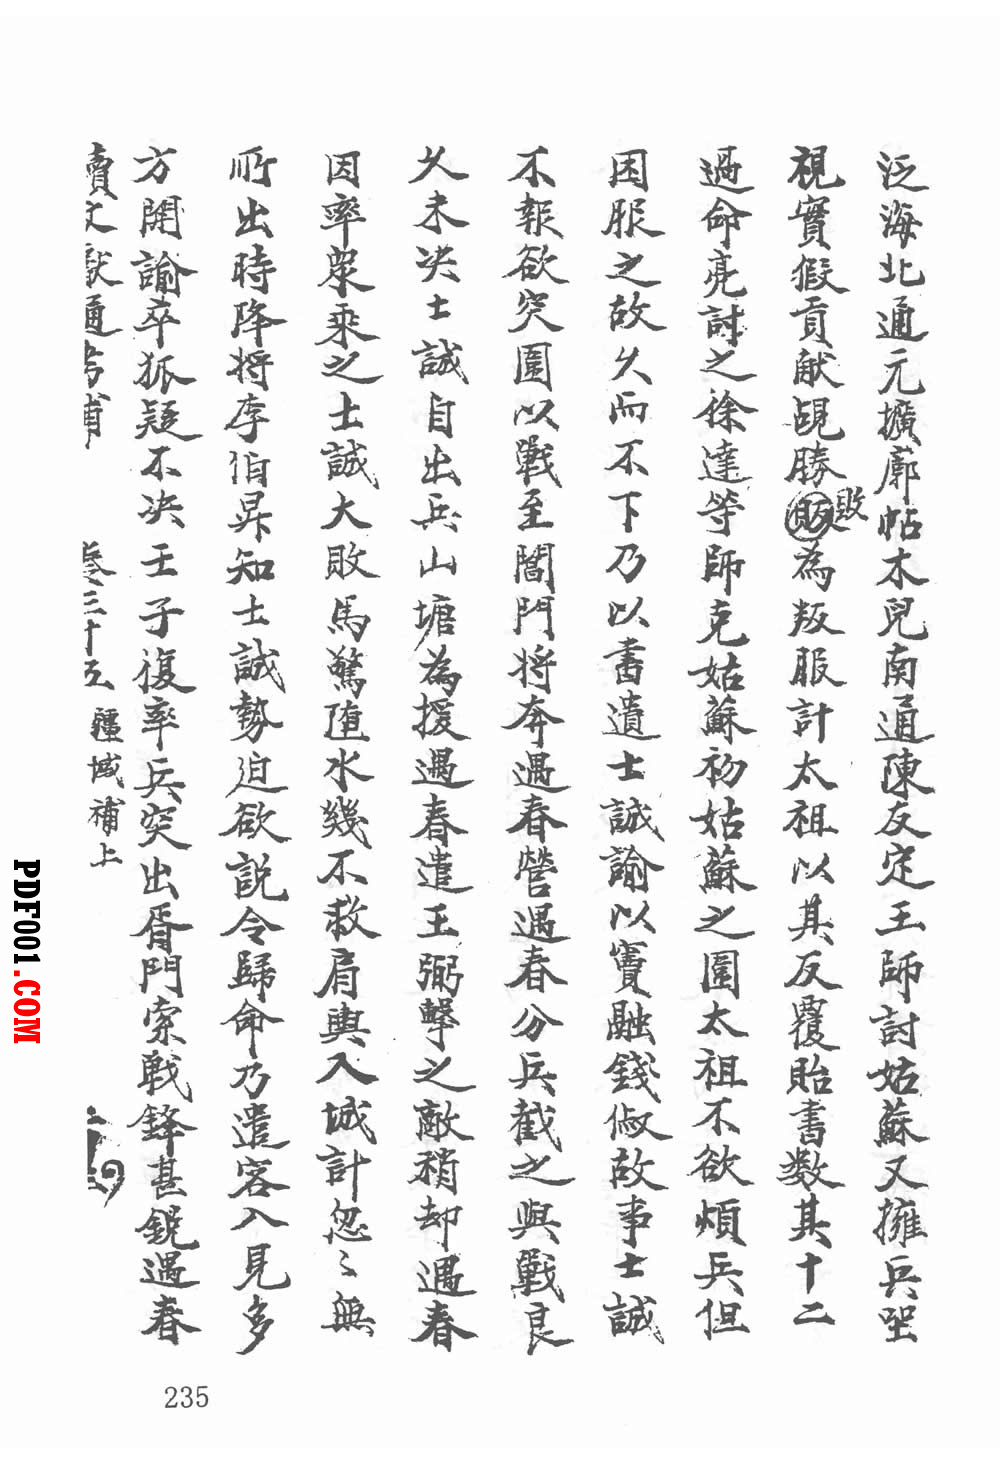 泛海北通元擴廓帖木兒南通陳友定王師討姑蘇又擁兵坐
視實假貢献覘勝敗為叛服計太祖以其反覆貽書数其十二
過命亮討之徐達等師克姑蘇初姑蘇之圍太祖不欲煩兵但
困服之故久而不下乃以書遺士誠諭以竇融錢俶故事士誠
不報欲突圍以戰至閶門将奔遇春營遇春分兵截之與戰良
久未决士誠自出兵山塘為援遇春遣王弼擊之敵稍却遇春
因率衆乘之士誠大敗馬驚堕水幾不救肩輿入城計忽〻無
所出時降将李伯昇知士誠勢迫欲説令歸命乃遣客入見多
方開諭卒狐疑不决壬子復率兵突出胥門索戰鋒甚鋭遇春
續文献通考補 卷三十五 疆域補上
235
PDF001.COM